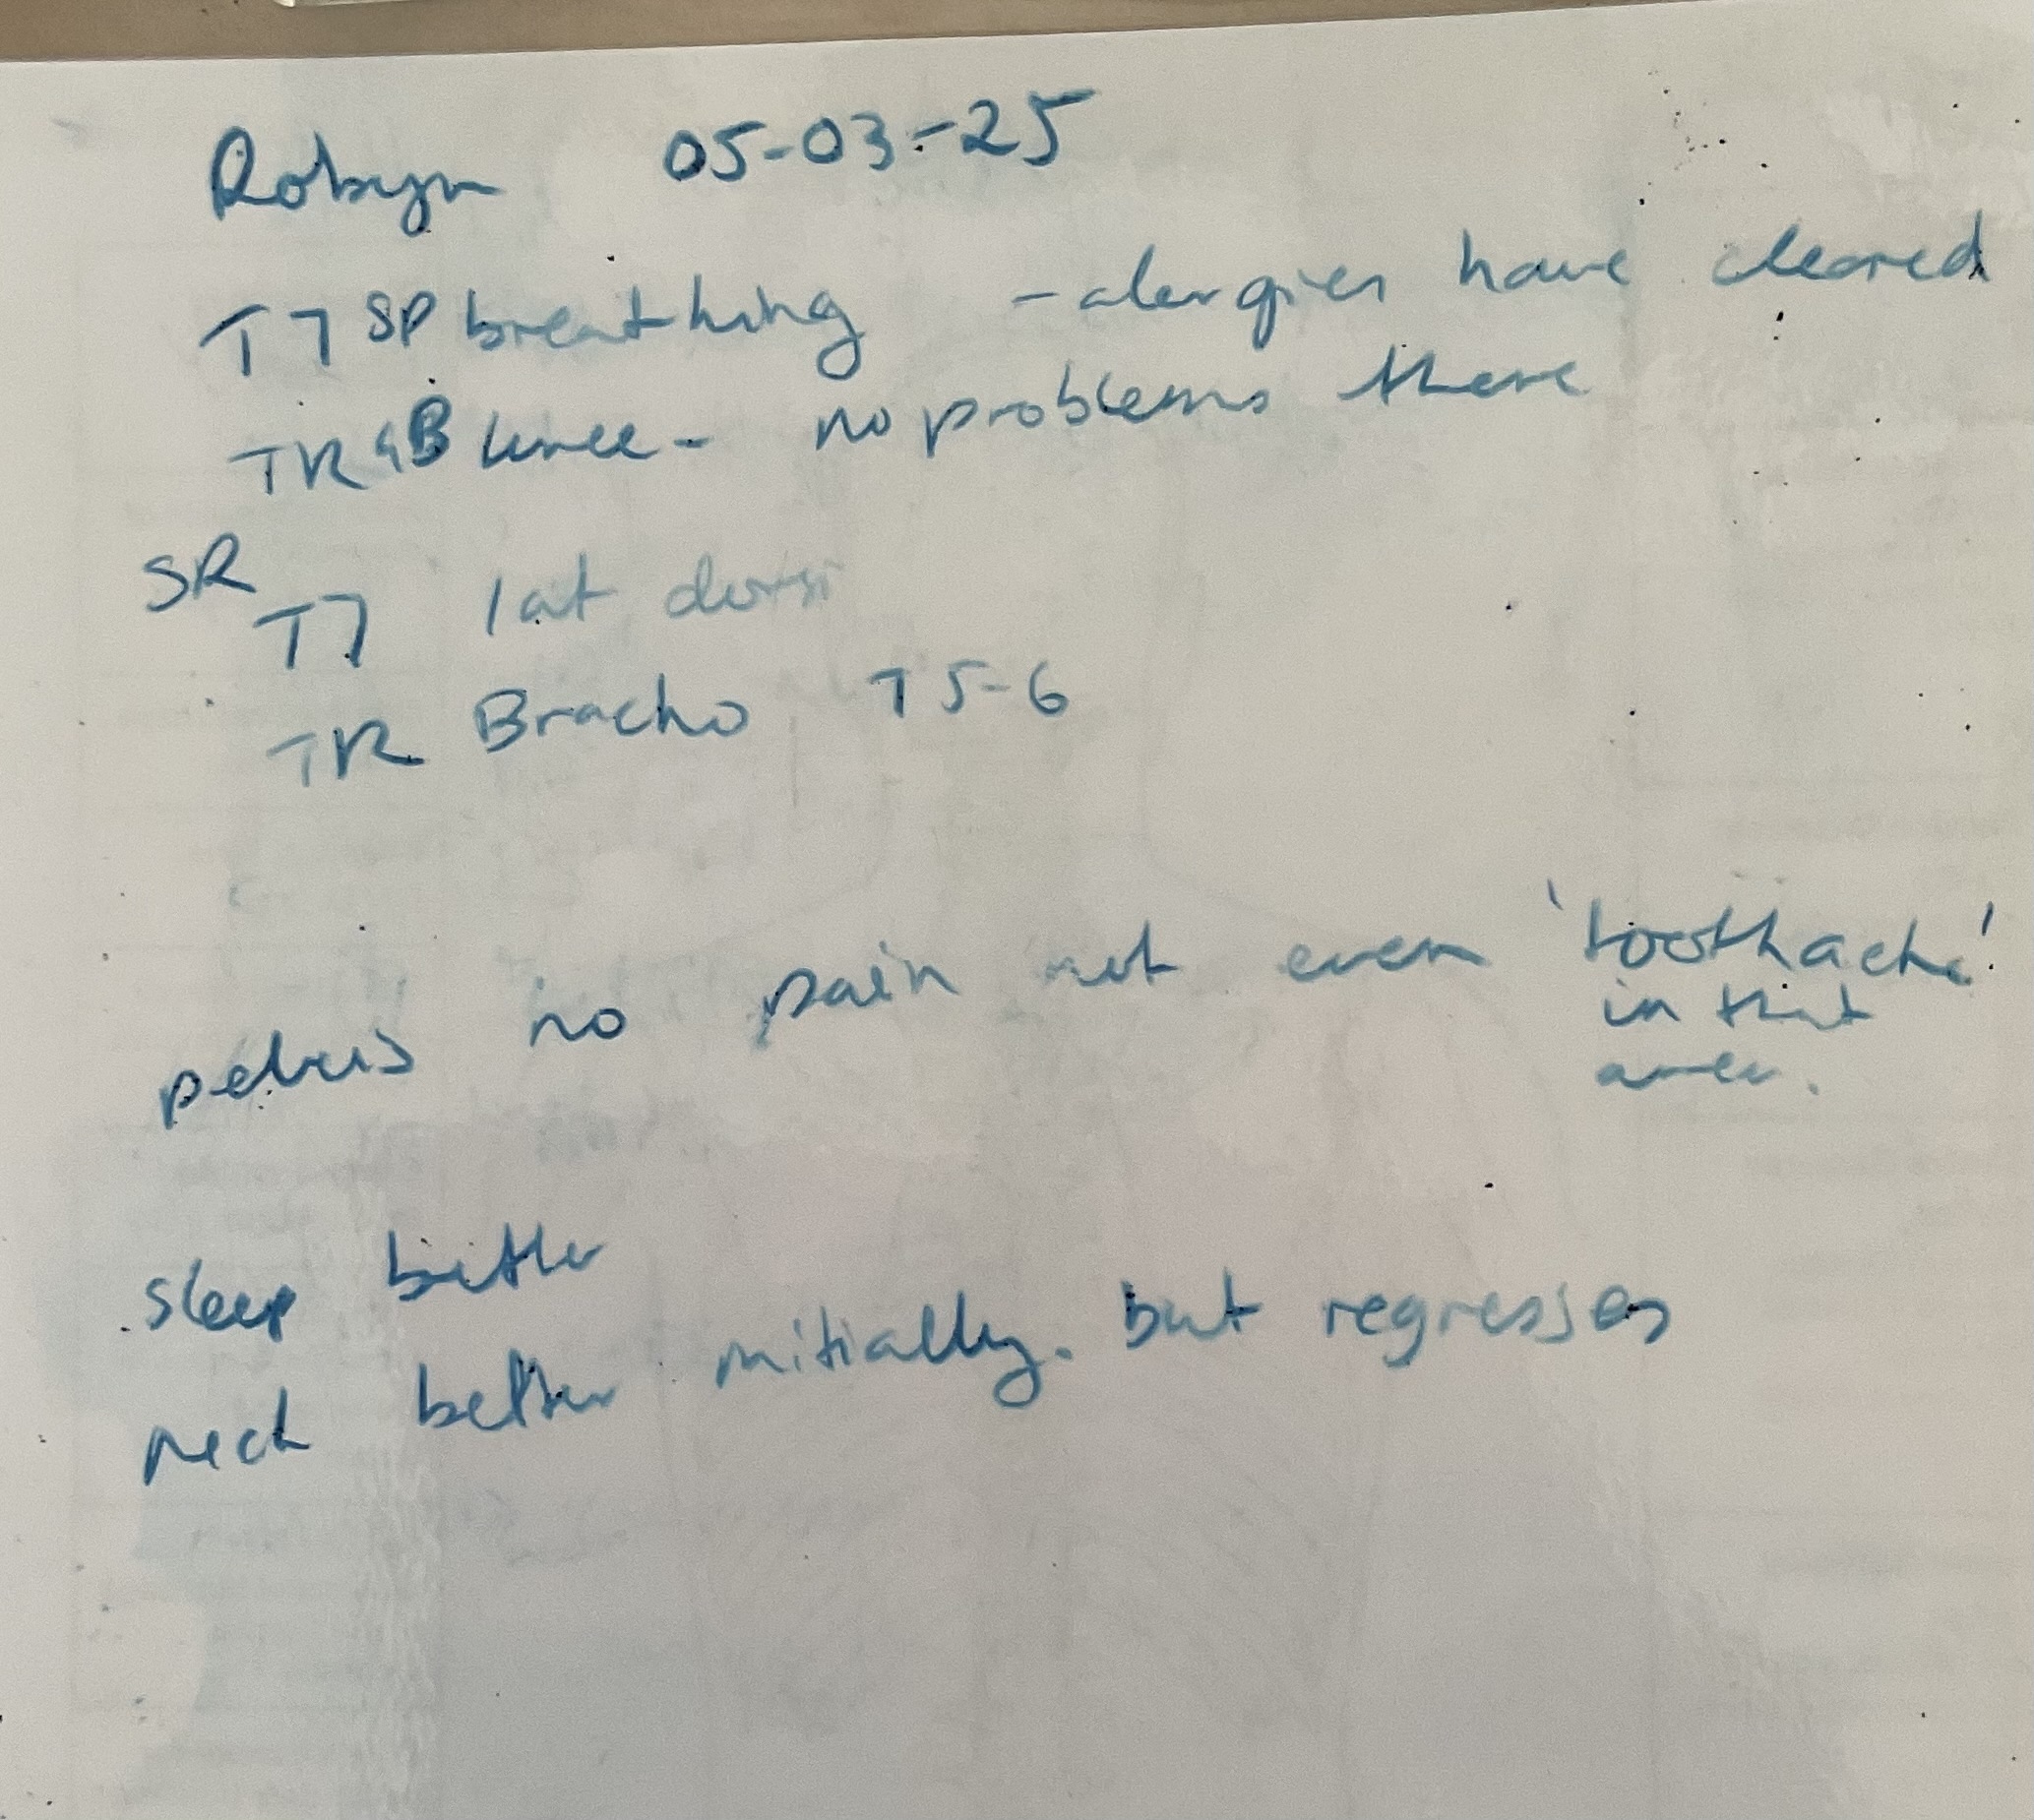 Robyn 05-03-25
T7 SP breathing - alergies have cleared
TR GB knee - no problems there
SR
T7 lat dorsi
TR Bracho T5-6
pelvis no pain not even 'toothache'
in that
area.
sleep better
neck better initially. but regresses